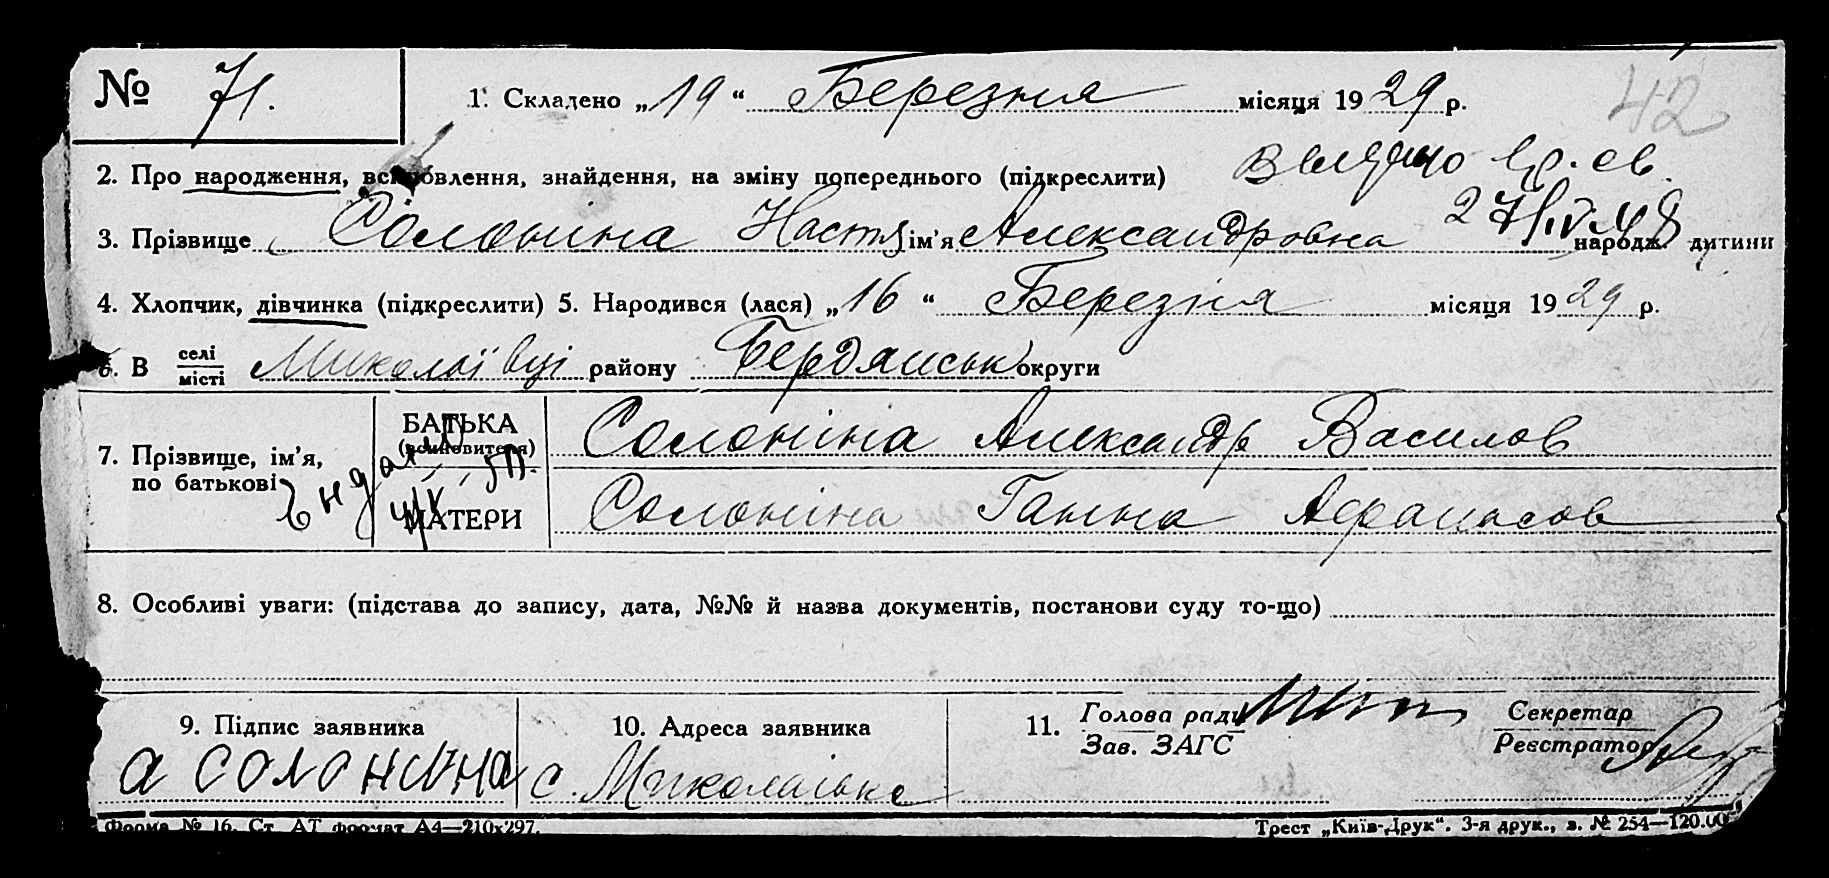 № 71. 1. Складено „19“ Березня місяця 1929 р. 42
2. Про народження, всиновлення, знайдення, на зміну попереднього (підкреслити) Выдано
3. Прізвище Солоніна Настя ім'я Александровна народж. дитини
27/IV-48
4. Хлопчик, дівчинка (підкреслити) 5. Народився (лася) „16“ Березня місяця 1929 р.
6. В селі/місті Миколаївці району Бердянськ округи
7. Прізвище, ім'я, по батькові
БАТЬКА (всиновителя) Солоніна Александр Василов
МАТЕРИ Солоніна Ганна Афанасов
8. Особливі уваги: (підстава до запису, дата, №№ й назва документів, постанови суду то-що)
9. Підпис заявника 10. Адреса заявника 11. Голова ради Секретар
Зав. ЗАГС Реєстратор
а солонина с. Миколаївка
Форма № 16. Ст. АТ формат А4—210х297. Трест „Київ-Друк“. 3-я друк., з. № 254—120.00